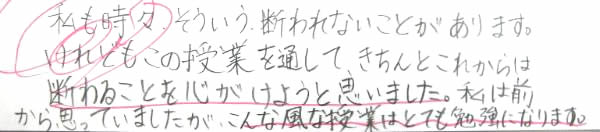 私も時々そういう断われないことがあります。
けれどもこの授業を通して、きちんとこれからは
断わることを心がけようと思いました。私は前
から思っていましたが、こんな風な授業はとても勉強になります。